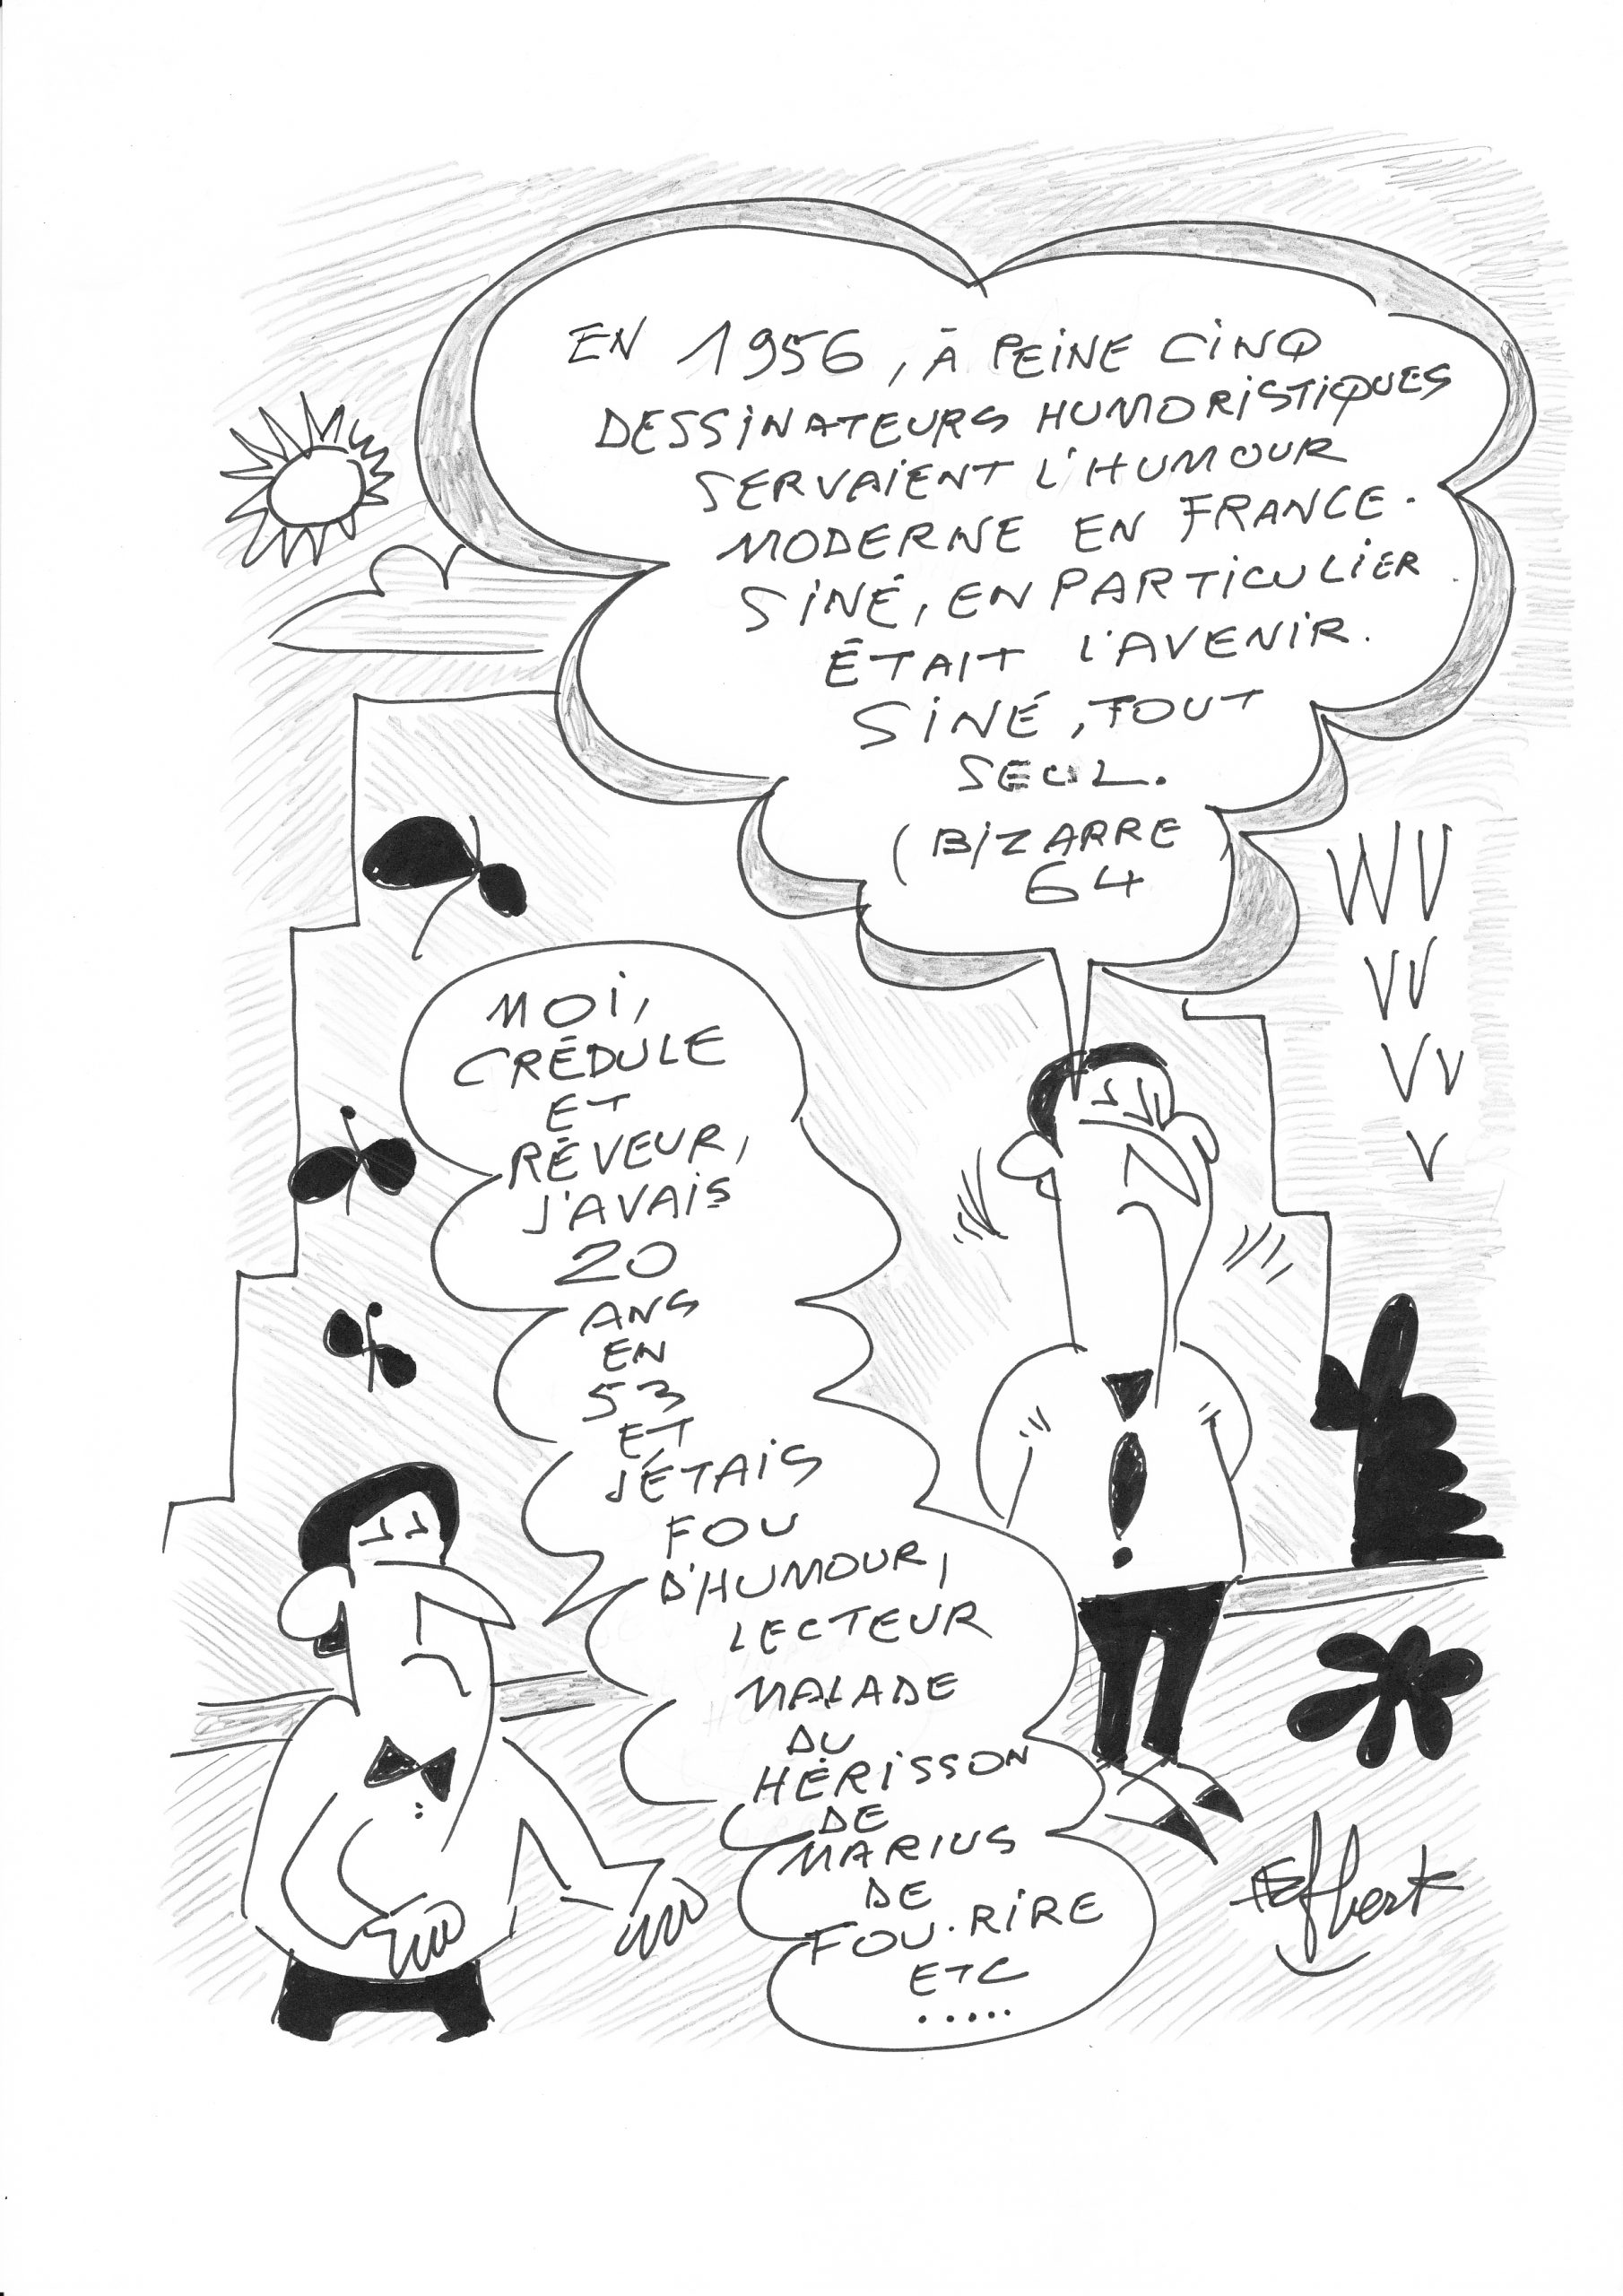 EN 1956, À PEINE CINQ
DESSINATEURS HUMORISTIQUES
SERVAIENT L'HUMOUR
MODERNE EN FRANCE.
SINÉ, EN PARTICULIER
ÉTAIT L'AVENIR.
SINÉ, TOUT
SEUL.
(BIZARRE
64
MOI,
CRÉDULE
ET
RÊVEUR,
J'AVAIS
20
ANS
EN
53
ET
J'ÉTAIS
FOU
D'HUMOUR,
LECTEUR
MALADE
DU
HÉRISSON
DE
MARIUS
DE
FOU-RIRE
ETC
.....